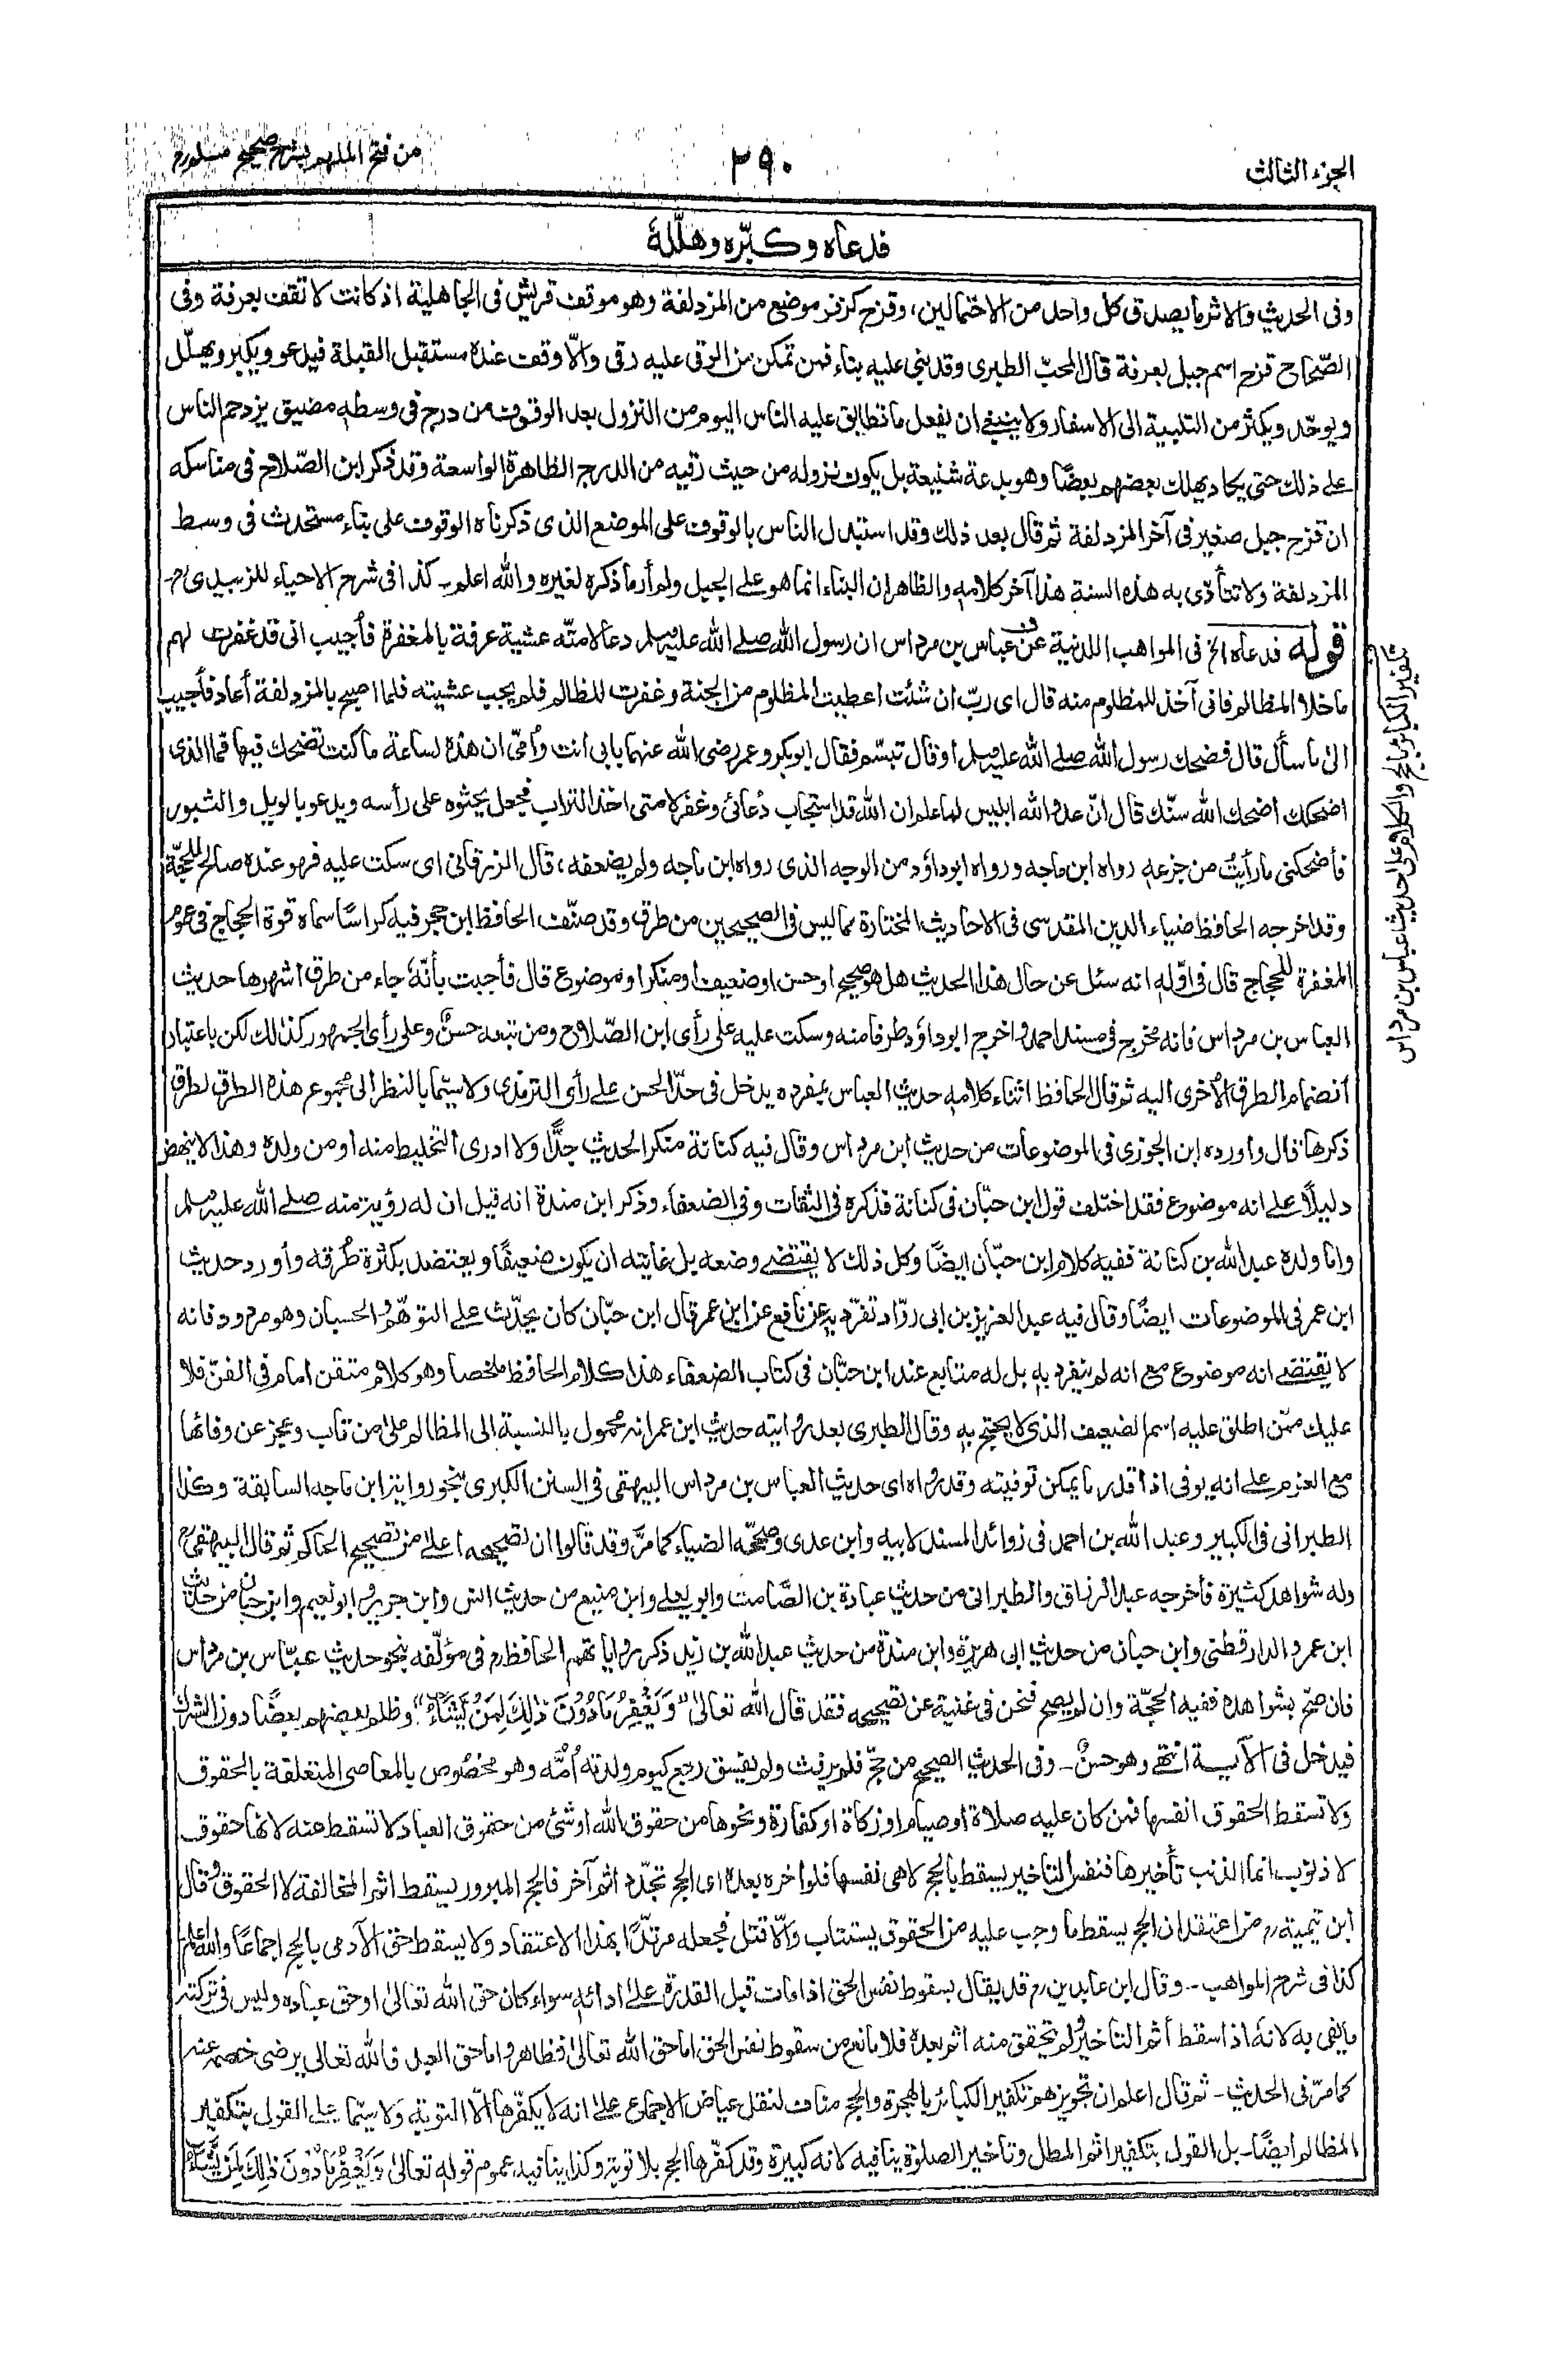 الجزء الثالث
٢٩٠
من فتح الملهم بشرح صحيح مسلم
فدعاه وكبّره وهلّله
وفى الحديث والاثر ما يصدق كل واحد من الاحتمالين، وقزح كزفر موضع من المزدلفة وهو موقف قريش فى الجاهلية اذ كانت لا تقف بعرفة وفى
الصّحاح قزح اسم جبل بعرفة قال المحبّ الطبرى وقد بنى عليه بناء فمن تمكن من الرقى عليه رقى والّا وقف عنده مستقبل القبلة فيدعو ويكبر ويهلّل
ويوحّد ويكثر من التلبية الى الاسفار ولا ينبغى ان يفعل ما تطابق عليه الناس اليوم من النزول بعد الوقوف من درج فى وسطه مضيق يزدحم الناس
على ذلك حتى يكاد يهلك بعضهم بعضًا وهو بدعة شنيعة بل يكون نزوله من حيث رقيه من الدرج الظاهرة الواسعة وقد ذكر ابن الصّلاح فى مناسكه
ان قزح جبل صغير فى آخر المزدلفة ثم قال بعد ذلك وقد استبدل الناس بالوقوف على الموضع الذى ذكرناه الوقوف على بناء مستحدث فى وسط
المزدلفة ولا تتأدّى به هذه السنة هذا آخر كلامه والظاهر ان البناء انما هو على الجبل ولم أر ما ذكره لغيره والله اعلم۔ كذا فى شرح الاحياء للزبيدى رح۔
قوله فدعاه الخ فى المواهب اللدنية عن عباس بن مرداس ان رسول الله صلے الله عليه وسلم دعا لامته عشية عرفة بالمغفرة فأجيب انى قد غفرت لهم
ما خلا المظالم فانى آخذ للمظلوم منه قال اى ربّ ان شئت اعطيت المظلوم من الجنة وغفرت للظالم فلم يجب عشيته فلما اصبح بالمزدلفة أعاد فأجيب
الىٰ ما سأل قال فضحك رسول الله صلے الله عليه وسلم أو قال تبسّم فقال ابوبكر وعمر رضى الله عنهما بابى انت وأمّى ان هذه لساعة ما كنت تضحك فيها فما الذى
اضحكك اضحك الله سنّك قال انّ عدو الله ابليس لما علم ان الله قد استجاب دُعائى وغفر لامتى اخذ التراب فجعل يحثوه على رأسه ويدعو بالويل والثبور
فأضحكنى ما رأيتُ من جزعه رواه ابن ماجه ورواه ابوداؤد من الوجه الذى رواه ابن ماجه ولم يضعفه، قال الزرقانى اى سكت عليه فهو عنده صالح للحجّة
وقد اخرجه الحافظ ضياء الدين المقدسى فى الاحاديث المختارة مما ليس فى الصحيحين من طرق وقد صنّف الحافظ ابن حجر فيه كراسًا سماه قوة الحجاج فى عموم
المغفرة للحجاج قال فى اوّله انه سئل عن حال هذا الحديث هل هو صحيح او حسن او ضعيف او منكر او موضوع قال فأجبت بأنّه جاء من طرق اشهرها حديث
العباس بن مرداس فانه مخرج فى مسند احمد واخرج ابوداؤد طرفا منه وسكت عليه على رأى ابن الصّلاح ومن تبعه حسنٌ وعلى رأى الجمهور كذلك لكن باعتبار
انضمام الطرق الأخرى اليه ثم قال الحافظ اثناء كلامه حديث العباس بمفرده يدخل فى حدّ الحسن على رأى الترمذى ولا سيّما بالنظر الى مجموع هذه الطرق لطرق
ذكرها قال وأورده ابن الجوزى فى الموضوعات من حديث ابن مرداس وقال فيه كنانة منكر الحديث جدًّا ولا ادرى التخليط منه او من ولده وهذا لا ينهض
دليلًا على انه موضوع فقد اختلف قول ابن حبّان فى كنانة فذكره فى الثقات وفى الضعفاء وذكر ابن مندة انه قيل ان له رؤية منه صلے الله عليه وسلم
واما ولده عبد الله بن كنانة ففيه كلام ابن حبّان ايضًا وكل ذلك لا يقتضے وضعه بل غايته ان يكون ضعيفًا ويعتضد بكثرة طُرقه وأورد حديث
ابن عمر فى الموضوعات ايضًا وقال فيه عبد العزيز بن ابى روّاد تفرّد به عن نافع عن ابن عمر قال ابن حبّان كان يحدّث على التوهّم والحسبان وهو مردود فانه
لا يقتضے انه موضوع مع انه لم ينفرد به بل له متابع عند ابن حبّان فى كتاب الضعفاء هذا كلام الحافظ ملخصا وهو كلام متقن امام فى الفنّ فلا
عليك ممّن اطلق عليه اسم الضعيف الذى لا يحتج به وقال الطبرى بعد روايته حديث ابن عمر انه محمول بالنسبة الى المظالم على من تاب وعجز عن وفائها
مع العزم على انه يوفى اذا قدر ما يمكن توفيته وقد رواه اى حديث العباس بن مرداس البيهقى فى السنن الكبرى بنحو رواية ابن ماجه السابقة وكذا
الطبرانى فى الكبير وعبد الله بن احمد فى زوائد المسند لابيه وابن عدى وصحّحه الضياء كما مرّ وقد قالوا ان تصحيحه اعلى من تصحيح الحاكم ثم قال البيهقى رح
وله شواهد كثيرة فأخرجه عبد الرزاق والطبرانى من حديث عبادة بن الصّامت وابو يعلے وابن منيع من حديث انس وابن جرير وابو نعيم وابن حبان من حديث
ابن عمر والدارقطنى وابن حبان من حديث ابى هريرة وابن مندة من حديث عبد الله بن زيد ذكر رواياتهم الحافظ رح فى مؤلّفه بنحو حديث عبّاس بن مرداس
فان صحّ بشواهده ففيه الحجّة وان لم يصح فنحن فى غنية عن تصحيحه فقد قال الله تعالىٰ "وَيَغْفِرُ مَا دُوْنَ ذٰلِكَ لِمَنْ يَّشَآءُ" وظلم بعضهم بعضًا دون الشرك
فيدخل فى الآية انتهے وهو حسنٌ۔ وفى الحديث الصحيح من حجّ فلم يرفث ولم يفسق رجع كيوم ولدته أمّه وهو مخصُوص بالمعاصى المتعلقة بالحقوق
ولا تسقط الحقوق انفسها فمن كان عليه صلاة او صيام او زكاة او كفارة ونحوها من حقوق الله او شئ من حقوق العباد لا تسقط عنه لانها حقوق
لا ذنوب انما الذنب تأخيرها فنفس التاخير يسقط بالحج لا هى نفسها فلو اخره بعده اى الحج تجدّد اثم آخر فالحج المبرور يسقط اثم المخالفة لا الحقوق وقال
ابن تيمية رح من اعتقد ان الحج يسقط ما وجب عليه من الحقوق يستتاب والّا قتل فجعله مرتدًّا بهذا الاعتقاد ولا يسقط حق الآدمى بالحج اجماعًا والله اعلم
كذا فى شرح المواهب۔ وقال ابن عابدين رح قد يقال بسقوط نفس الحق اذا مات قبل القدرة علىٰ ادائه سواء كان حق الله تعالىٰ او حق عباده وليس فى تركته
ما يفى به لانهٗ اذا سقط أثم التاخير ولم يتحقق منه اثم بعده فلا مانع من سقوط نفس الحق اما حق الله تعالىٰ فظاهر واما حق العبد فالله تعالى يرضى خصمه عنه
كما مرّ فى الحديث۔ ثم قال اعلم ان تجويزهم تكفير الكبائر بالهجرة والحج مناف لنقل عياض الاجماع علىٰ انه لا يكفّرها الّا التوبة ولا سيّما على القول بتكفير
المظالم ايضًا۔ بل القول بتكفير اثم المطل وتأخير الصلوٰة ينافيه لانه كبيرة وقد كفّرها الحج بلا توبة وكذا ينافيه عموم قوله تعالىٰ وَيَغْفِرُ مَا دُوْنَ ذٰلِكَ لِمَنْ يَّشَآءُ
تكفير الكبائر بالحج والكلام على حديث عباس بن مرداس